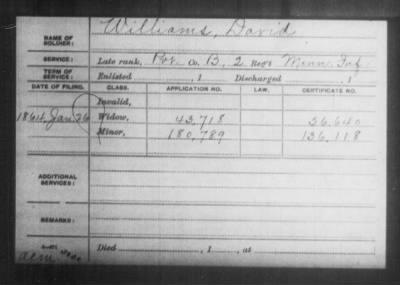 Williams, David
NAME OF SOLDIER:
SERVICE: Late rank, Pvt. Co. B, 2 Reg't Minn. Inf.
TERM OF SERVICE: Enlisted , 1 Discharged , 1
DATE OF FILING. CLASS. APPLICATION NO. LAW. CERTIFICATE NO.
Invalid,
1864, Jan 26 Widow, 43,718 36,640
Minor, 180,789 136,118
ADDITIONAL SERVICES:
REMARKS:
Died , 1 , at